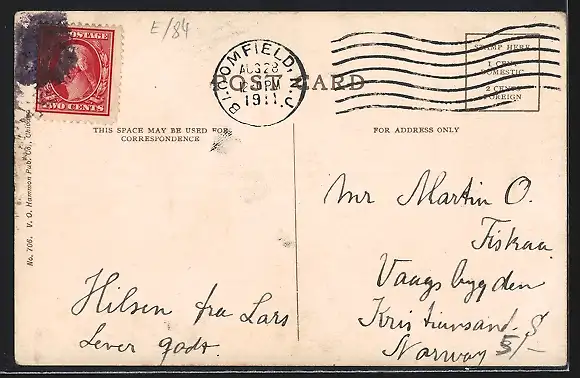 E/84
POSTAGE
TWO CENTS
BLOOMFIELD, N.J.
AUG 28
1911
POST CARD
STAMP HERE
1 CENT
DOMESTIC
2 CENTS
FOREIGN
THIS SPACE MAY BE USED FOR
CORRESPONDENCE
FOR ADDRESS ONLY
No. 706. V. O. Hammon Pub. Co.,
Mr Martin O.
Fiskaa
Vaagsbygden
Kristiansand. S
Norway
5/-
Hilsen fra Lars
Lever godt.